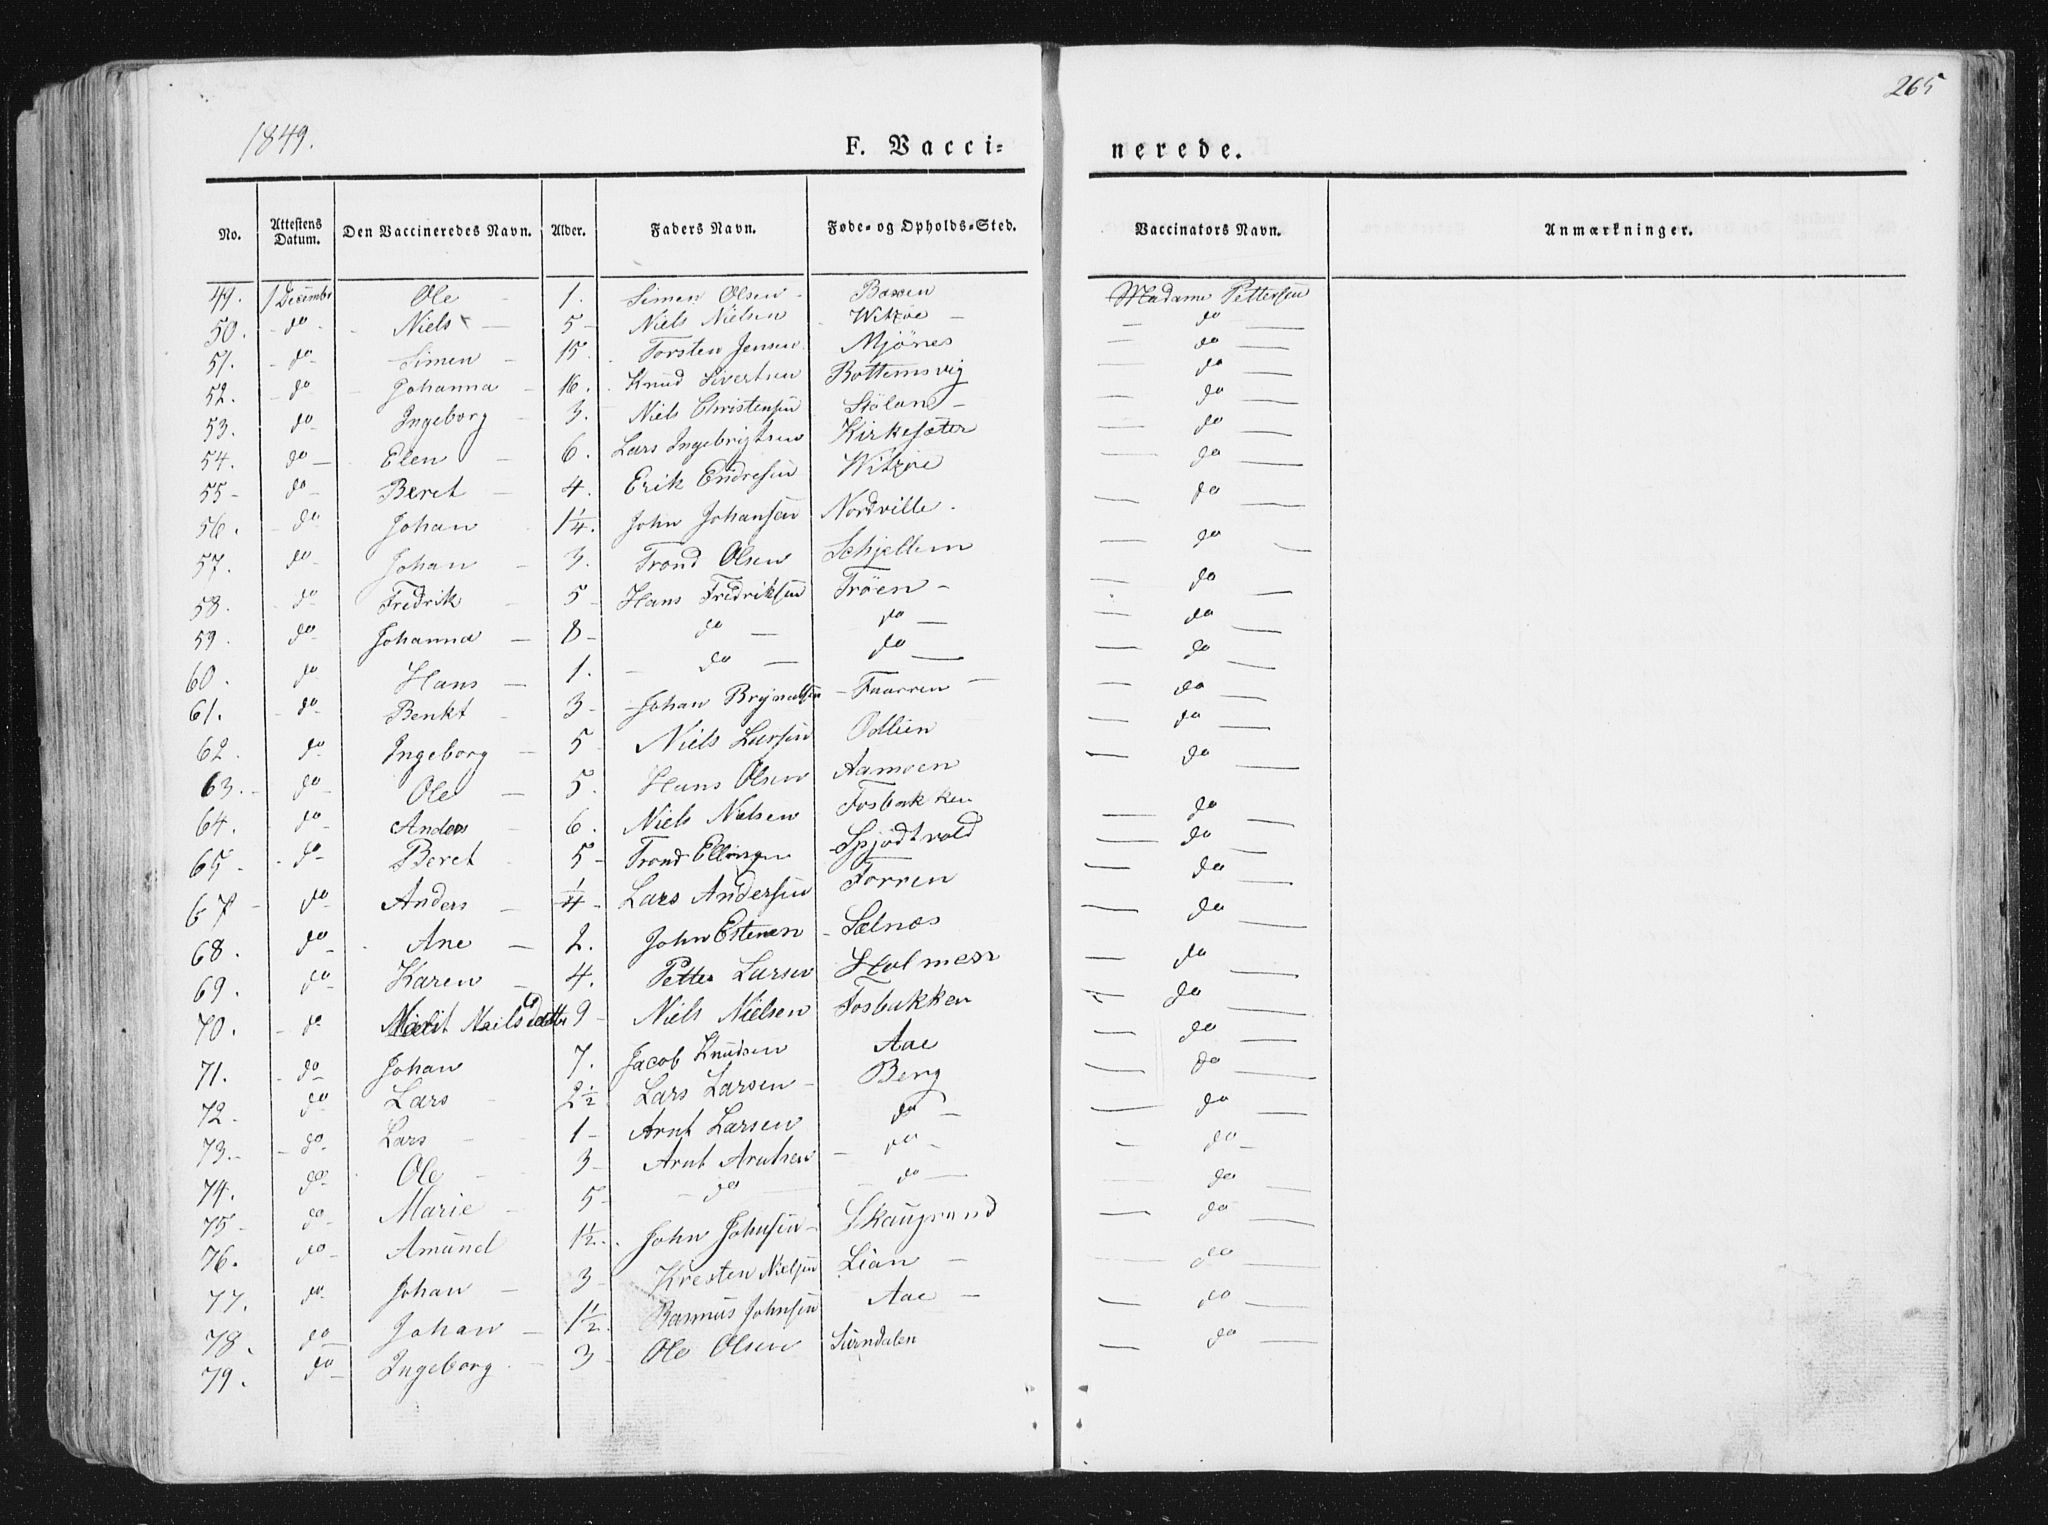 265
1849.
F. Vacci= nerede.
No. Attestens Datum. Den Vaccineredes Navn. Alder. Faders Navn. Føde- og Opholds-Sted. Vaccinators Navn. Anmærkninger.
49. 1 Decembr Ole - 1. Simen Olsen - Madame Pettersen
50. do Niels - 5 - Niels Nielsen Witzøe - do
51. do Simen - 15. Torsten Jensen Mjönes do
52. do Johanna - 16. Knud Sivertsen Bottensvig do
53. do Ingeborg - 3. Niels Christensen Stölan - do
54. do Elen - 6. Lars Ingebrigtsen Kirkesæter do
55 - do Beret - 4. Erik Endresen Witzøe do
56. do Johan 1 1/4. John Johansen Nordville. do
57. do Johan - 3. Trond Olsen Schjellem do
58. do Fredrik - 5 - Hans Fredriksen Tröen - do
59. do Johanna - 8 - do - do - do
60. do Hans - 1. - do - do - do
61. do Benkt - 3 - Johan Brynelsen - - do
62. do Ingeborg - 5 Niels Larsen Odlien do
63. - do Ole - 5. Hans Olsen Aamoen do
64. do Anders - 6. Niels Nielsen Fosbakken do
65. - do Beret 5 - Trond Ellingsen Spjödtvold do
67 - do Anders - 1/4 - Lars Andersen Torren do
68. do Ane - 2. John Estensen - Sælnæs do
69. do Karen - 4. Petter Larsen Holmen do
70. - do Marit Nielsdatter 9 - Niels Nielsen Fosbakken do
71. - do Johan 7. Jacob Knudsen Aae do
72. do Lars - 2 1/2 Lars Larsen - Berg do
73. - do - Lars - 1 - Arnt Larsen do - do
74. do Ole - 3 - Arnt Arntsen - do - do -
75 - do - Marie - 5 - - do - do - do
76. do - Amund 1 1/2. John Johnsen - Skaugrand do
77. do Johan - 3 - Kresten Nielsen Lian - do
78. do Johan - 1 1/2. Rasmus Johnsen Aae - do
79. do - Ingeborg. - 3 - Ole Olsen Surndalen do